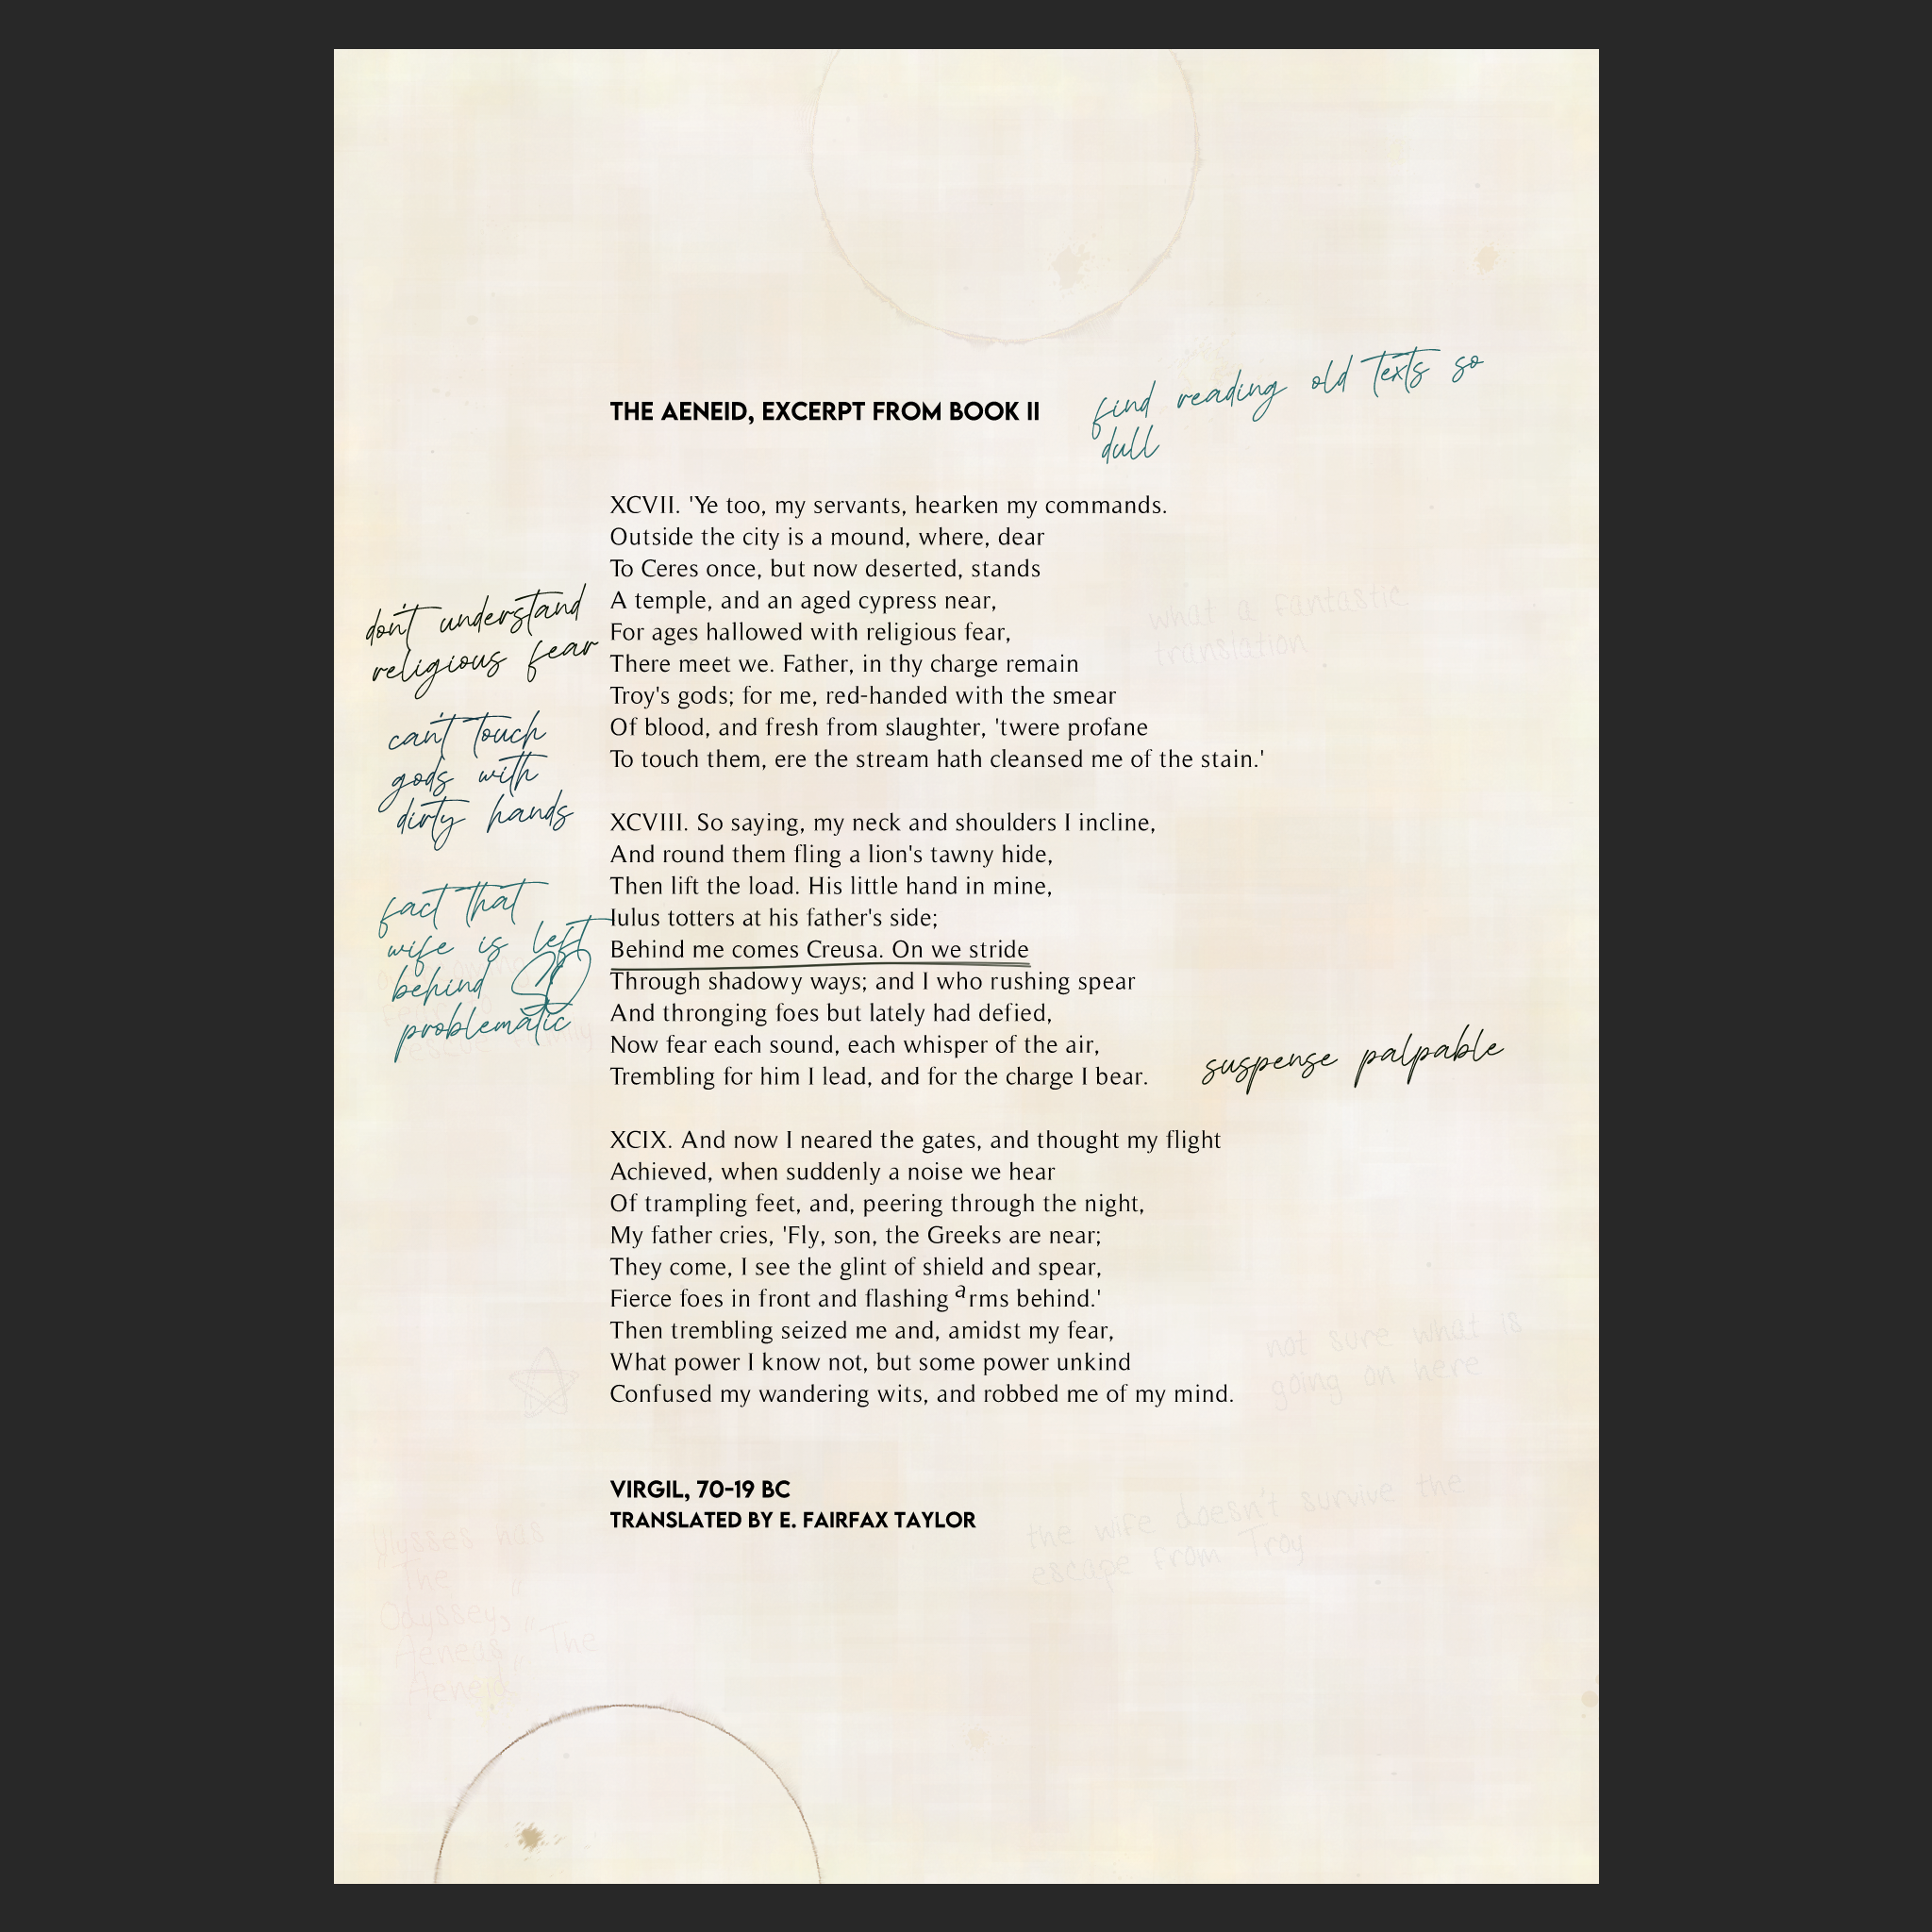 THE AENEID, EXCERPT FROM BOOK II
find reading old texts so
dull
XCVII. 'Ye too, my servants, hearken my commands.
Outside the city is a mound, where, dear
To Ceres once, but now deserted, stands
A temple, and an aged cypress near,
For ages hallowed with religious fear,
There meet we. Father, in thy charge remain
Troy's gods; for me, red-handed with the smear
Of blood, and fresh from slaughter, 'twere profane
To touch them, ere the stream hath cleansed me of the stain.'
don't understand
religious fear
what a fantastic
translation
can't touch
gods with
dirty hands
XCVIII. So saying, my neck and shoulders I incline,
And round them fling a lion's tawny hide,
Then lift the load. His little hand in mine,
Iulus totters at his father's side;
Behind me comes Creusa. On we stride
Through shadowy ways; and I who rushing spear
And thronging foes but lately had defied,
Now fear each sound, each whisper of the air,
Trembling for him I lead, and for the charge I bear.
fact that
wife is left
behind SO
problematic
suspense palpable
XCIX. And now I neared the gates, and thought my flight
Achieved, when suddenly a noise we hear
Of trampling feet, and, peering through the night,
My father cries, 'Fly, son, the Greeks are near;
They come, I see the glint of shield and spear,
Fierce foes in front and flashing arms behind.'
Then trembling seized me and, amidst my fear,
What power I know not, but some power unkind
Confused my wandering wits, and robbed me of my mind.
not sure what is
going on here
VIRGIL, 70-19 BC
TRANSLATED BY E. FAIRFAX TAYLOR
the wife doesn't survive the
escape from Troy
Ulysses has
"The
Odyssey,"
Aeneas "The
Aeneid"